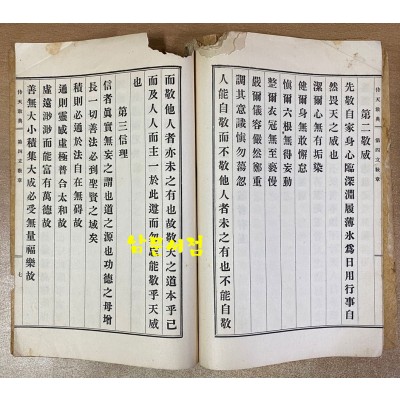 第二敬威
先敬自家身心臨深淵履薄氷爲日用行事自
然畏天之威也
潔爾心無有垢染
健爾身無敢懈怠
愼爾六根無得妄動
整爾衣冠無至褻慢
嚴爾儀容儼然鄭重
調其意識愼勿蕩忽
人能自敬而不敬他人者未之有也不能自敬
而敬他人者亦未之有也故敬天之道本乎己
而及人人而主一於此道而勿怠能敬乎天威
也
第三信理
信者眞實無妄之謂也道之源也功德之母增
長一切善法必到聖賢之域矣
積則必通於法自在無碍故
通則靈感虛極普合太和故
虛遠渺渺而能富有萬德故
善無大小積集大成必受無量福樂故
七